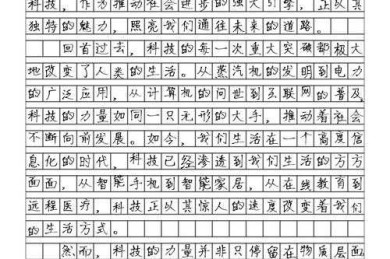 科技，作为推动社会进步的强大引擎，正以其
独特的魅力，照亮我们通往未来的道路。
回首过去，科技的每一次重大突破都极大
地改变了人类的生活。从蒸汽机的发明到电力
的广泛应用，从计算机的问世到互联网的普及，
科技的力量如同一只无形的大手，推动着社会
不断向前发展。如今，我们生活在一个高度信
息化的时代，科技已经渗透到我们生活的方方
面面，从智能手机到智能家居，从在线教育到
远程医疗，科技正以其惊人的速度改变着我们
的生活方式。
然而，科技的力量并非只停留在物质层面